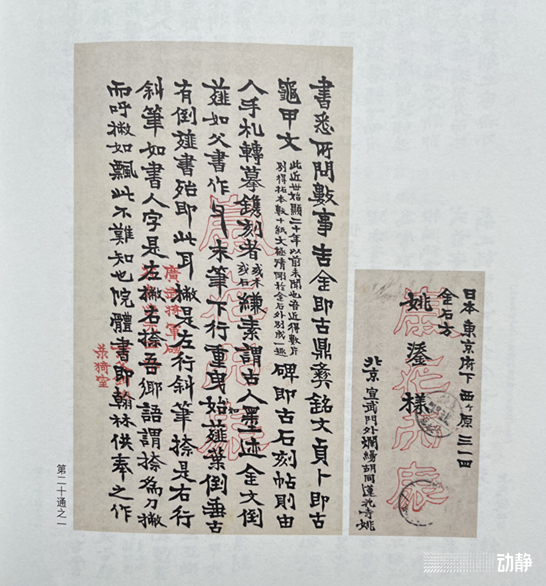 書悉所問數事吉金即古鼎彝銘文貞卜即古
龜甲文此近世始顯二十年以前未聞也吾近得數片
別得拓本數十紙文極精於金石外別成一趣碑即古石刻帖則由
人手札轉摹鐫刻者或木或石縑素謂古人墨迹金文倒
薤如父書作末筆下行重始如薤葉倒垂古
有倒薤書殆即此耳撇是左行斜筆捺是右行
斜筆如書人字是左撇右捺吾鄉語謂捺為刀撇
而呼撇如飄此不難知也院體書即翰林供奉之作
廣武將軍碑
第二十通之一
日本東京府下西ヶ原三一四
金石方
姚鋆様
北京宣武門外爛縵胡同蓮花寺姚
动静